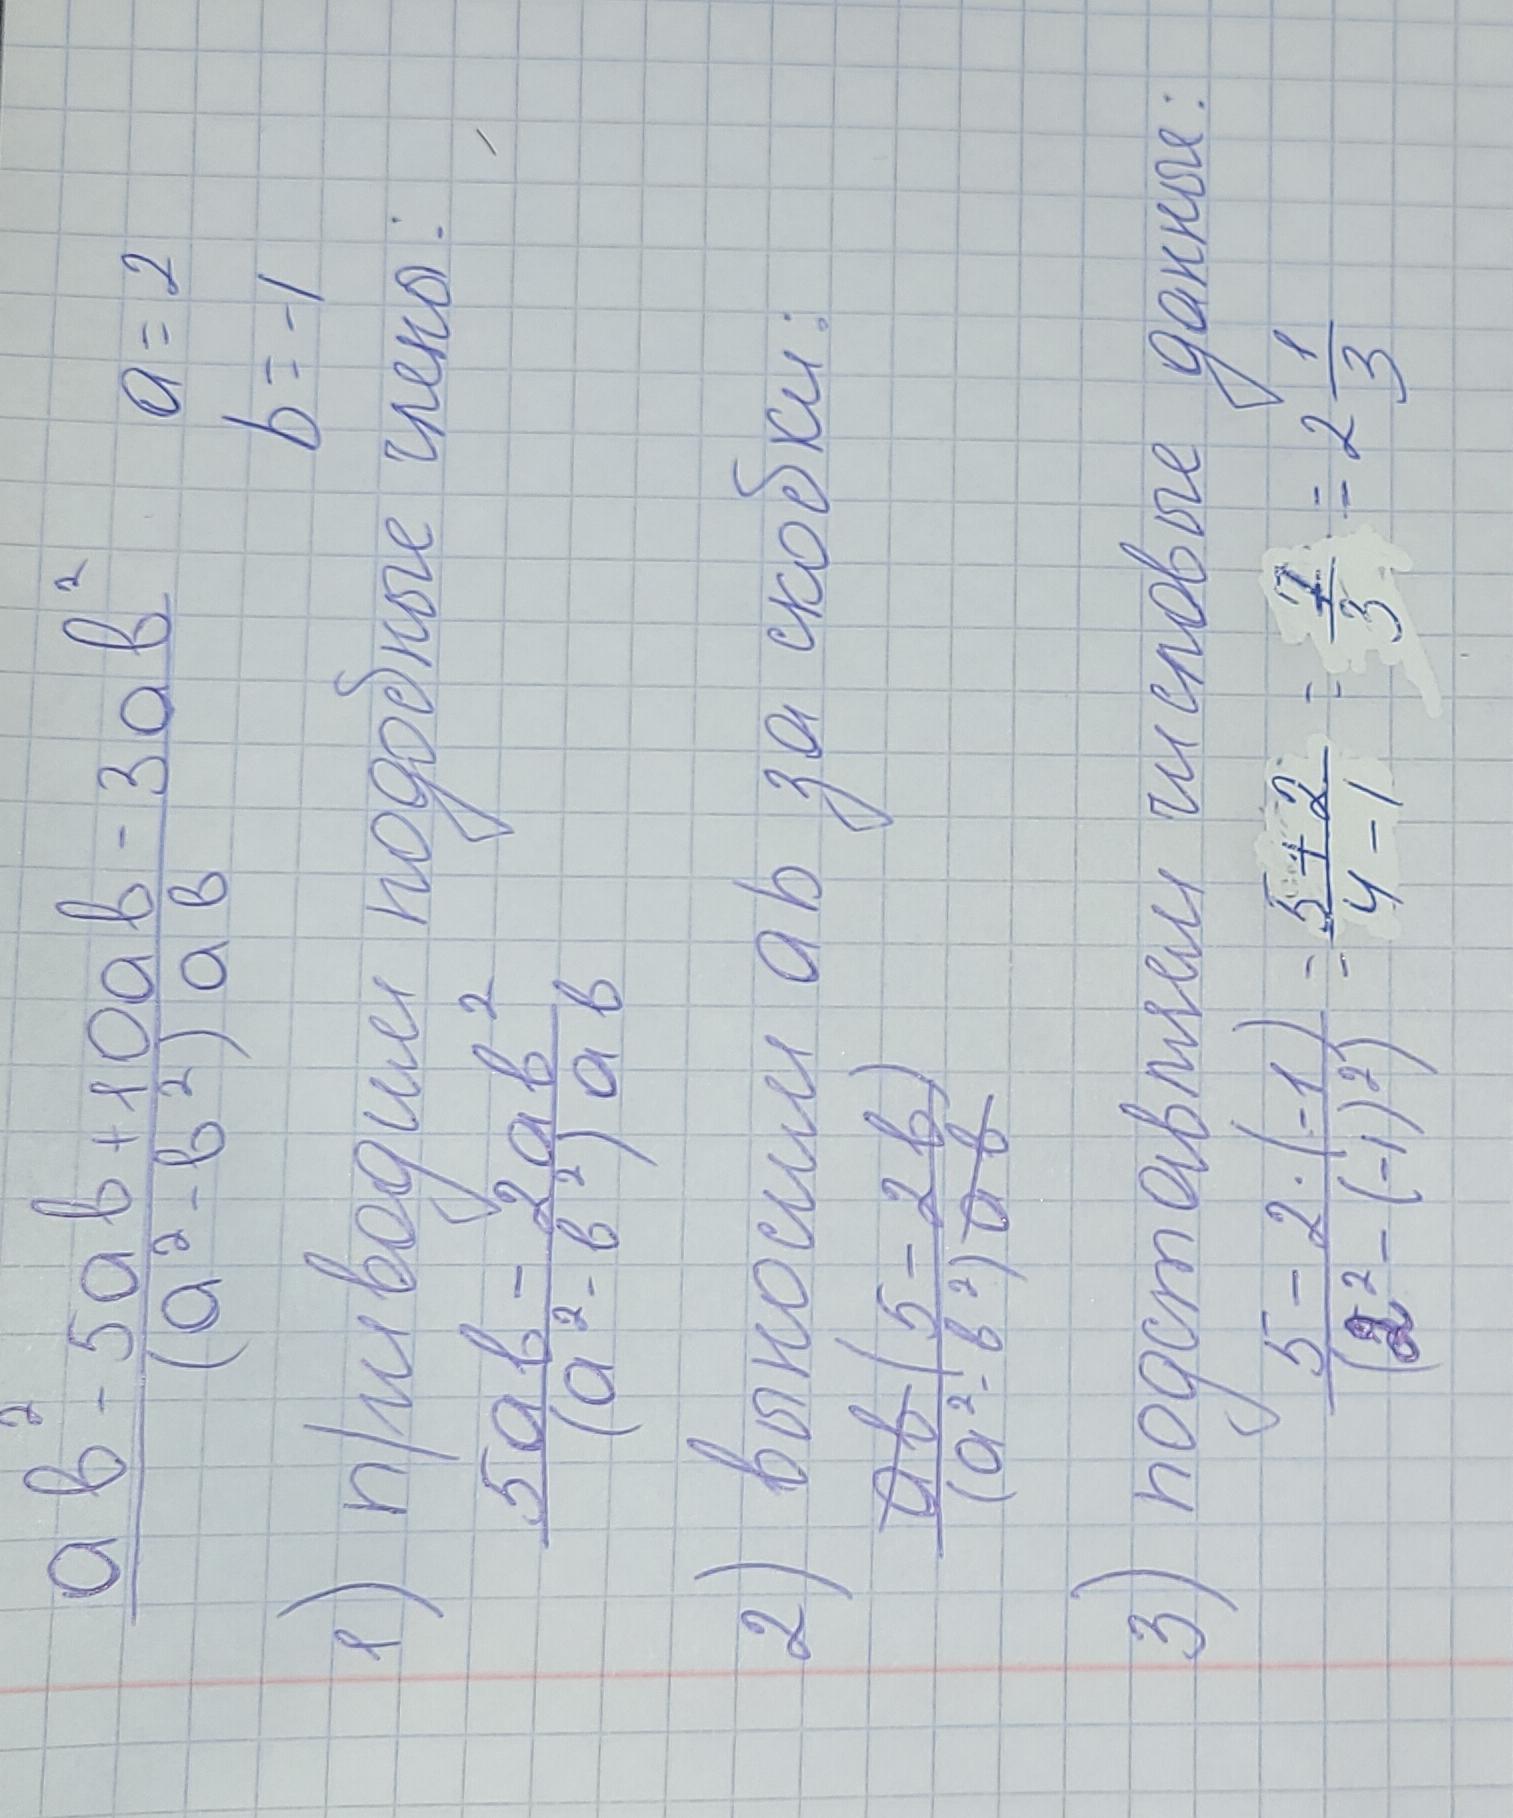 ab² - 5ab + 10ab - 3ab²
(a² - b²) ab
a = 2
b = -1
1) приводим подобные члены:
5ab - 2ab²
(a² - b²) ab
2) выносим ab за скобки:
ab (5 - 2b)
(a² - b²) ab
3) подставляем числовые данные:
5 - 2 · (-1) = 5 + 2 = 7 = 2 1
(2² - (-1)²) 4 - 1 3 3